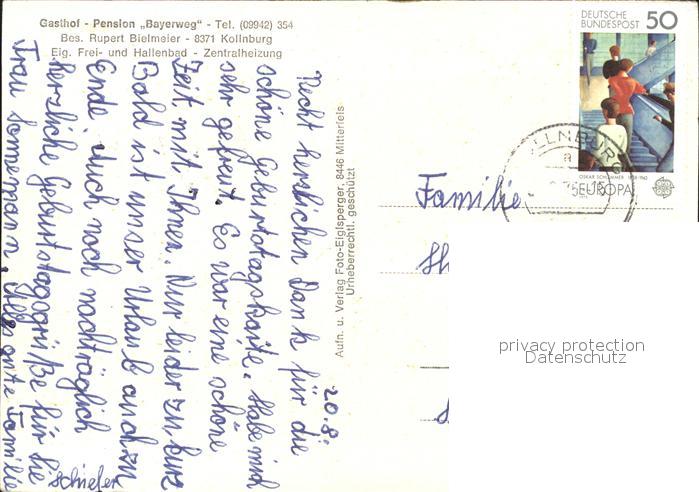 Gasthof - Pension „Bayerweg" - Tel. (09942) 354
Bes. Rupert Bielmeier - 8371 Kollnburg
Eig. Frei- und Hallenbad - Zentralheizung
20.8.
Recht herzlichen Dank für die
schöne Geburtstagskarte. Habe mich
sehr gefreut. Es war eine schöne
Zeit mit Ihnen. Nur leider zu kurz
Bald ist unser Urlaub auch zu
Ende. Auch noch nachträglich
herzliche Geburtstagsgrüße für Sie
Frau Sonnemann. Alles gute Familie
Schiefer
Aufn. u. Verlag Foto-Eiglsperger, 8446 Mitterfels
Urheberrechtl. geschützt
DEUTSCHE
BUNDESPOST 50
OSKAR SCHLEMMER 1888-1943
EUROPA
LLNBURG
a
Familie
privacy protection
Datenschutz